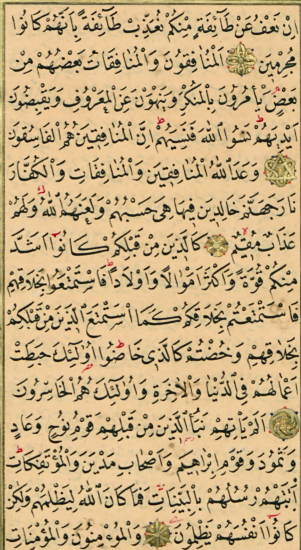 اِنْ نَعْفُ عَنْ طَآئِفَةٍ مِنْكُمْ نُعَذِّبْ طَآئِفَةً بِاَنَّهُمْ كَانُوا
مُجْرِمِينَ اَلْمُنَافِقُونَ وَالْمُنَافِقَاتُ بَعْضُهُمْ مِنْ
بَعْضٍ يَاْمُرُونَ بِالْمُنْكَرِ وَيَنْهَوْنَ عَنِ الْمَعْرُوفِ وَيَقْبِضُونَ
اَيْدِيَهُمْ نَسُوا اللهَ فَنَسِيَهُمْ اِنَّ الْمُنَافِقِينَ هُمُ الْفَاسِقُونَ
وَعَدَ اللهُ الْمُنَافِقِينَ وَالْمُنَافِقَاتِ وَالْكُفَّارَ
نَارَ جَهَنَّمَ خَالِدِينَ فِيهَا هِىَ حَسْبُهُمْ وَلَعَنَهُمُ اللهُ وَلَهُمْ
عَذَابٌ مُقِيمٌ كَالَّذِينَ مِنْ قَبْلِكُمْ كَانُوا اَشَدَّ
مِنْكُمْ قُوَّةً وَاَكْثَرَ اَمْوَالًا وَاَوْلَادًا فَاسْتَمْتَعُوا بِخَلَاقِهِمْ
فَاسْتَمْتَعْتُمْ بِخَلَاقِكُمْ كَمَا اسْتَمْتَعَ الَّذِينَ مِنْ قَبْلِكُمْ
بِخَلَاقِهِمْ وَخُضْتُمْ كَالَّذِى خَاضُوا اُولٰئِكَ حَبِطَتْ
اَعْمَالُهُمْ فِى الدُّنْيَا وَالْاٰخِرَةِ وَاُولٰئِكَ هُمُ الْخَاسِرُونَ
اَلَمْ يَاْتِهِمْ نَبَاُ الَّذِينَ مِنْ قَبْلِهِمْ قَوْمِ نُوحٍ وَعَادٍ
وَثَمُودَ وَقَوْمِ اِبْرٰهِيمَ وَاَصْحَابِ مَدْيَنَ وَالْمُؤْتَفِكَاتِ
اَتَتْهُمْ رُسُلُهُمْ بِالْبَيِّنَاتِ فَمَا كَانَ اللهُ لِيَظْلِمَهُمْ وَلٰكِنْ
كَانُوا اَنْفُسَهُمْ يَظْلِمُونَ وَالْمُؤْمِنُونَ وَالْمُؤْمِنَاتُ